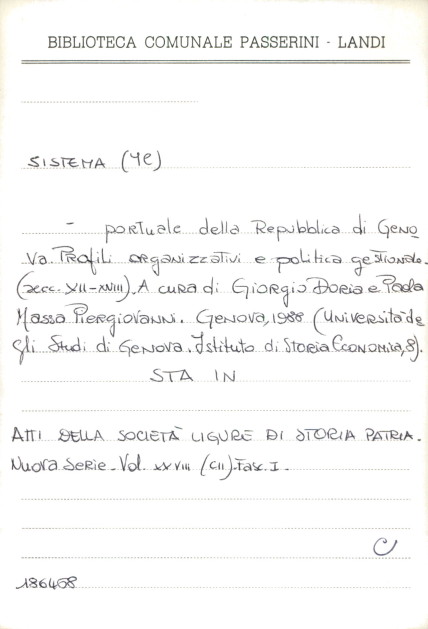 BIBLIOTECA COMUNALE PASSERINI - LANDI
SISTEMA (Il)
- portuale della Repubblica di Geno
va. Profili organizzativi e politica gestionale.
(secc. XII-XVIII). A cura di Giorgio Doria e Paola
Massa Piergiovanni. Genova, 1988 (Università de
gli Studi di Genova. Istituto di Storia Economica, 8).
STA IN
ATTI DELLA SOCIETÀ LIGURE DI STORIA PATRIA.
Nuova Serie. Vol. XXVIII (CII). Fasc. I.
C
186468